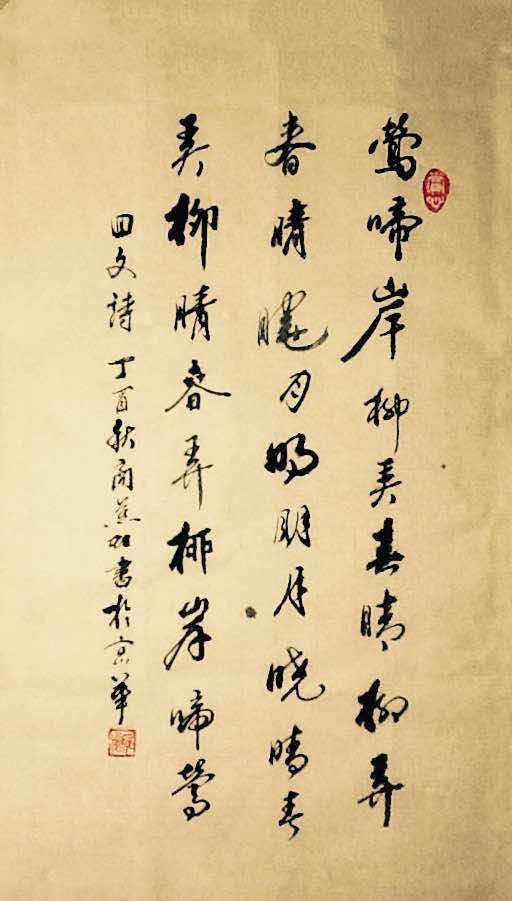 鶯啼岸柳弄春晴柳弄
春晴曉月明明月晓晴春
弄柳晴春弄柳岸啼鶯
回文詩 丁酉秋 書於京華